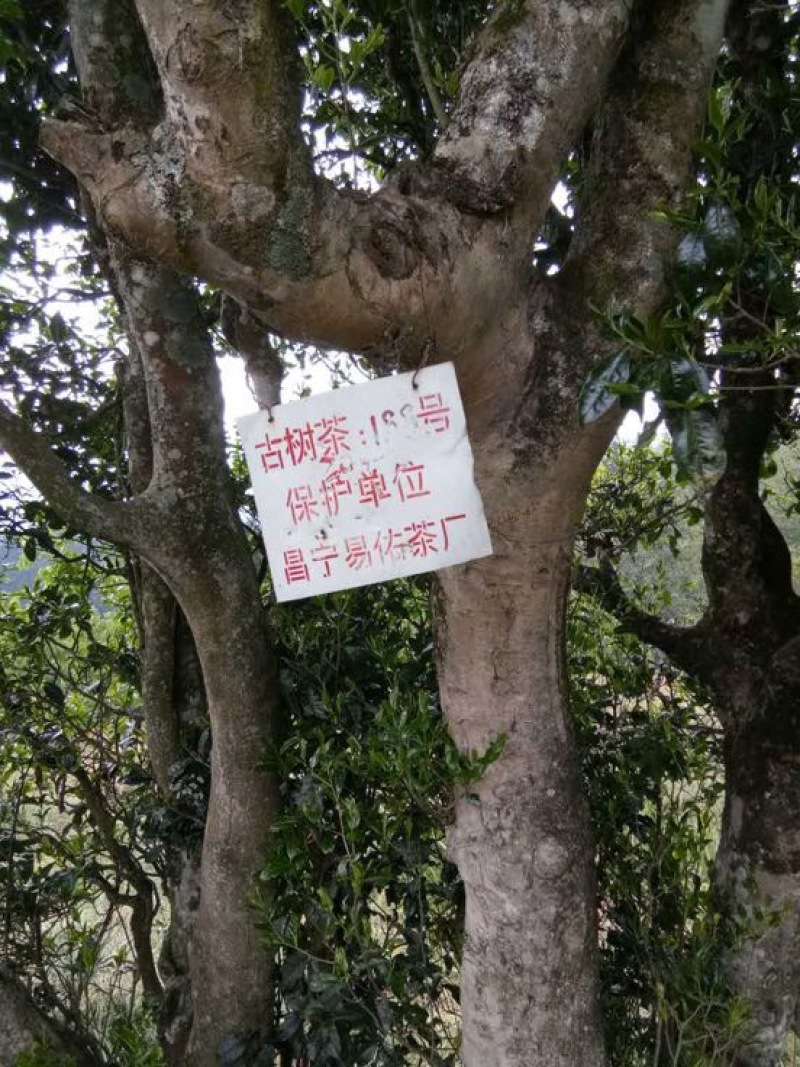 古树茶:188号
保护单位
昌宁易佑茶厂